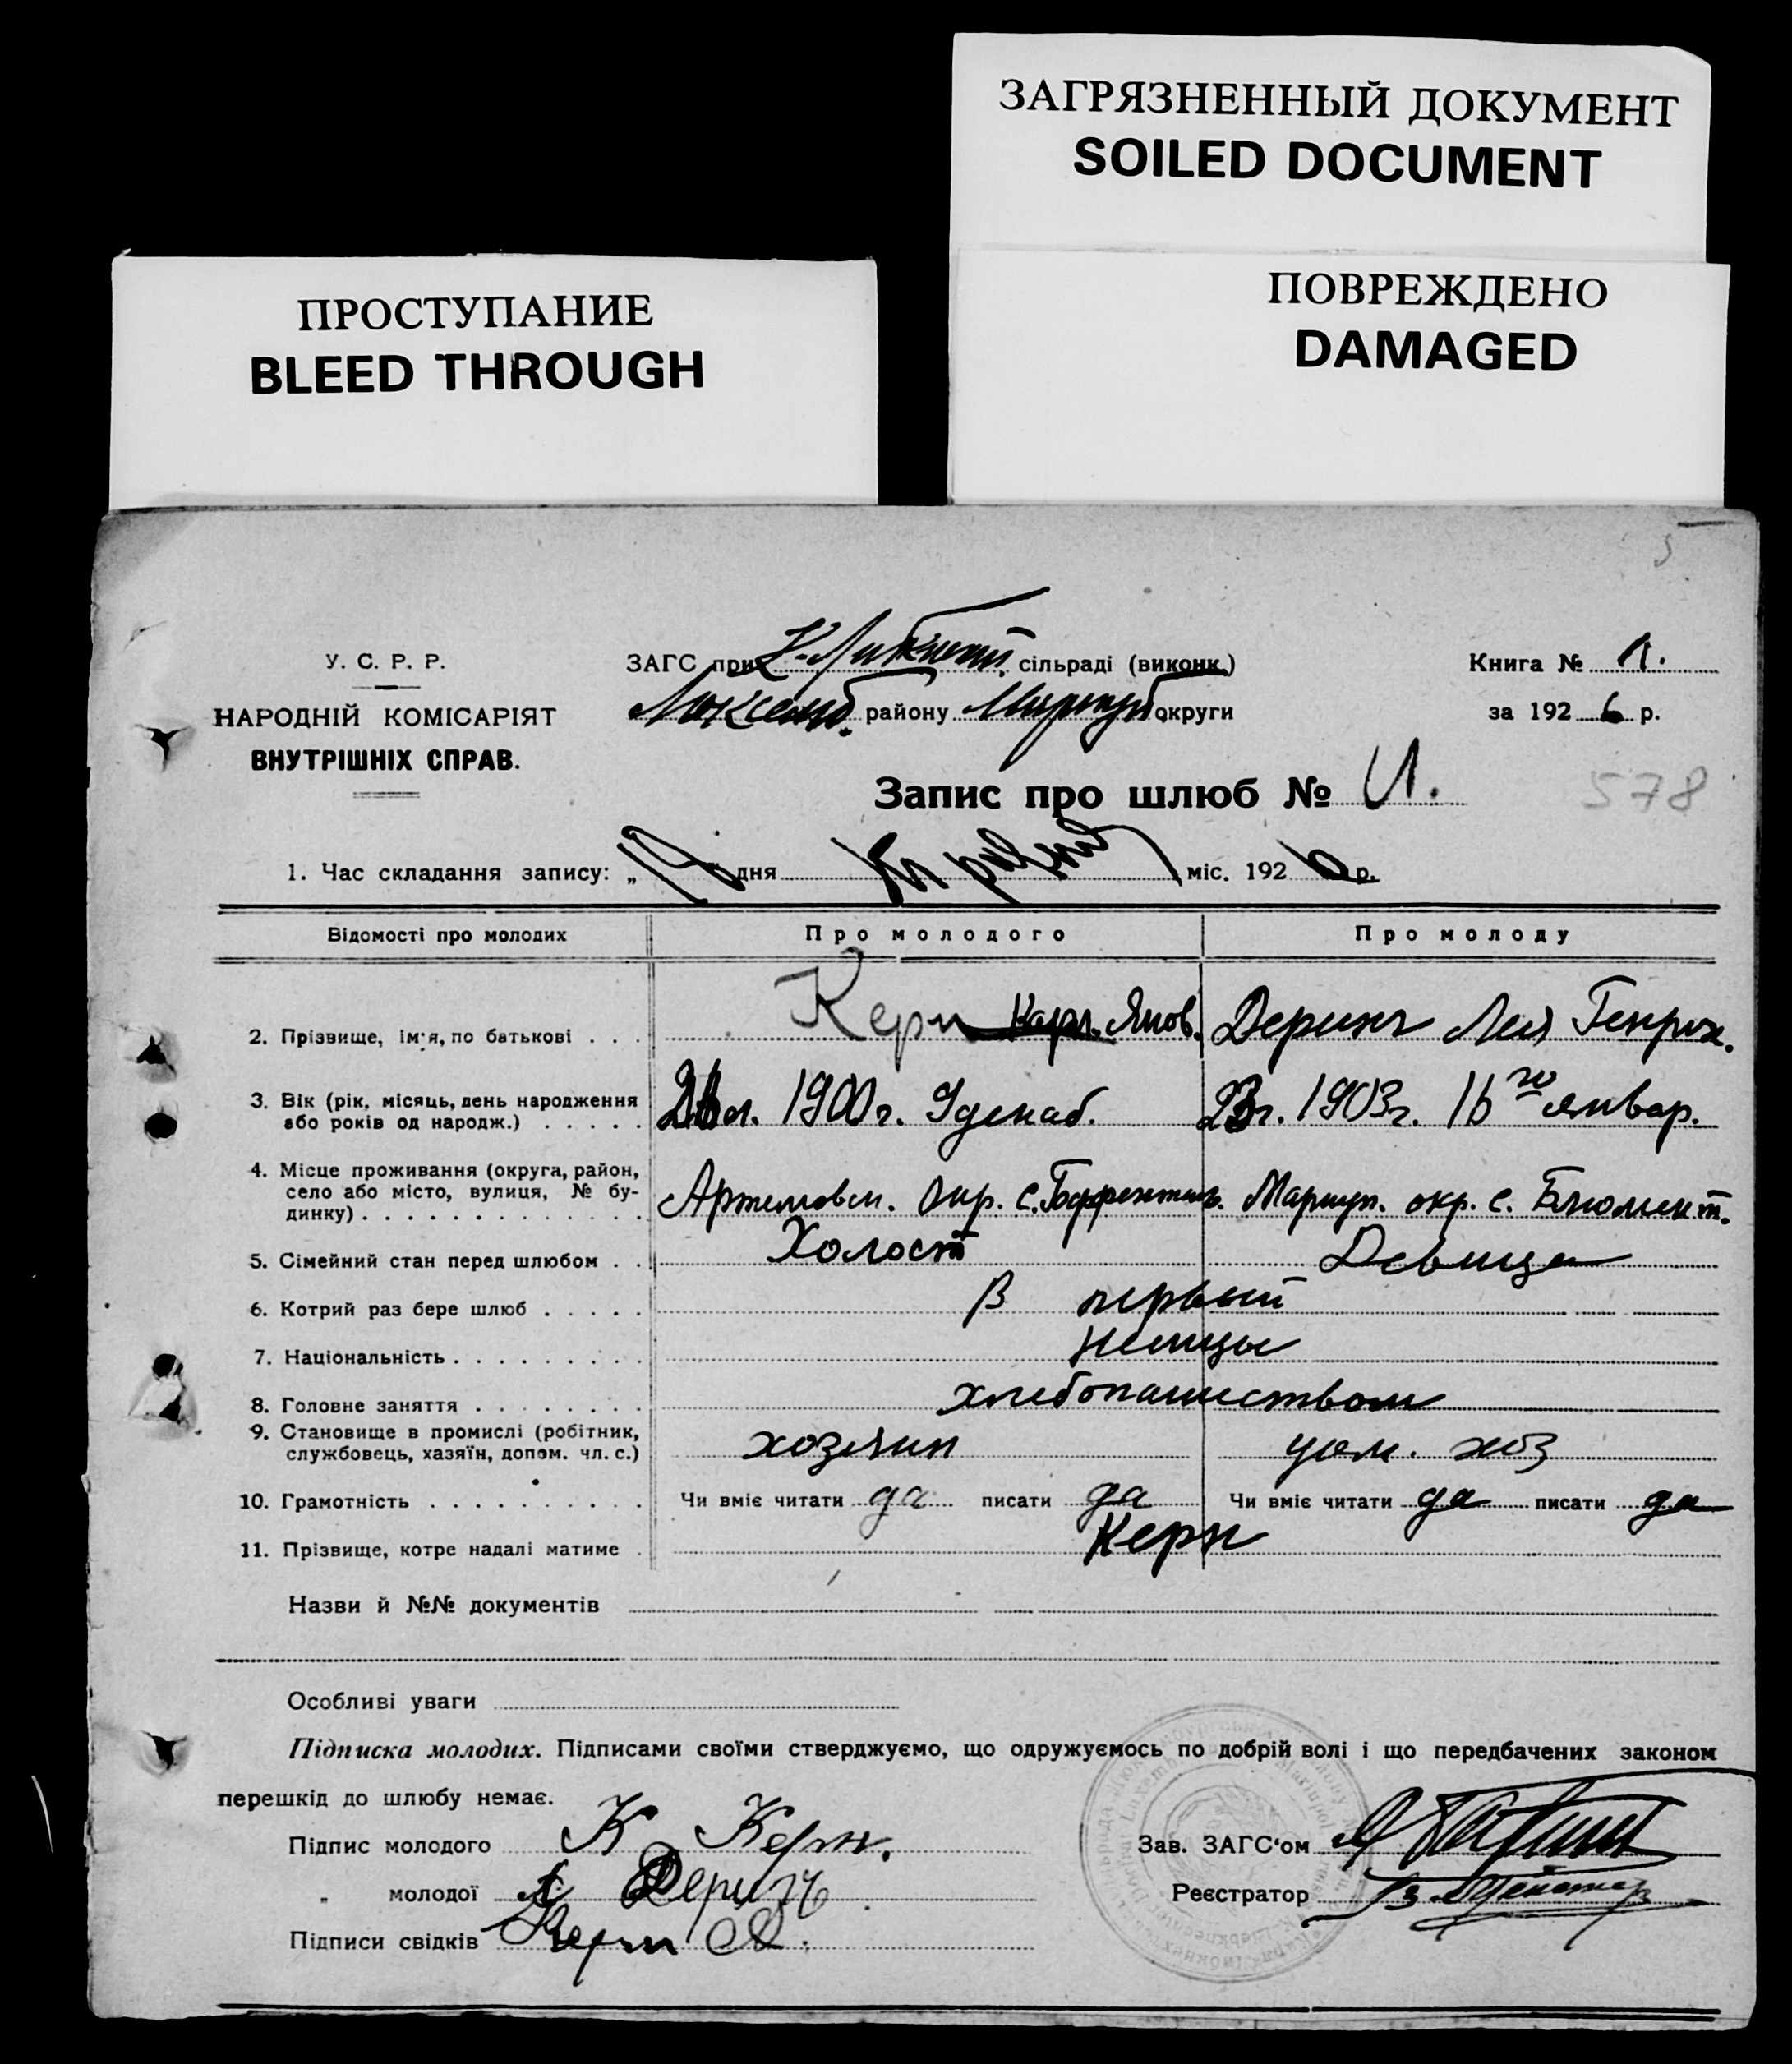 ЗАГРЯЗНЕННЫЙ ДОКУМЕНТ
SOILED DOCUMENT
ПРОСТУПАНИЕ
BLEED THROUGH
ПОВРЕЖДЕНО
DAMAGED
5
У. С. Р. Р.
НАРОДНІЙ КОМІСАРІЯТ
ВНУТРІШНІХ СПРАВ.
ЗАГС при К-Либкнехт. сільраді (виконк.)
Люксемб. району Мариуп. округи
Книга №
за 1926 р.
Запис про шлюб №
578
1. Час складання запису: „ дня міс. 1926 р.
Відомості про молодих Про молодого Про молоду
2. Прізвище, ім'я, по батькові . . . Керн Карл. Яков. Деринг Лея Генрих.
3. Вік (рік, місяць, день народження або років од народж.) . . . . . 1900 г. 9 декаб. 23 г. 1903 г. 16го январ.
4. Місце проживання (округа, район, село або місто, вулиця, № будинку) . . . Артемовск. Окр. с. Мариуп. окр. с. Блюмент.
5. Сімейний стан перед шлюбом . . Холост Девица
6. Котрий раз бере шлюб . . . . . В первый
7. Національність . . . . . . . . . немцы
8. Головне заняття . . . . . . . . хлебопашеством
9. Становище в промислі (робітник, службовець, хазяїн, допом. чл. с.) хозяин дом. хоз
10. Грамотність . . . . . . . . . . Чи вміє читати да писати да Чи вміє читати да писати да
11. Прізвище, котре надалі матиме . Керн
Назви й №№ документів
Особливі уваги
Підписка молодих. Підписами своїми стверджуємо, що одружуємось по добрій волі і що передбачених законом
перешкід до шлюбу немає.
Підпис молодого К Керн.
„ молодої Л Деринг
Підписи свідків Керн Я.
Зав. ЗАГС'ом
Реєстратор